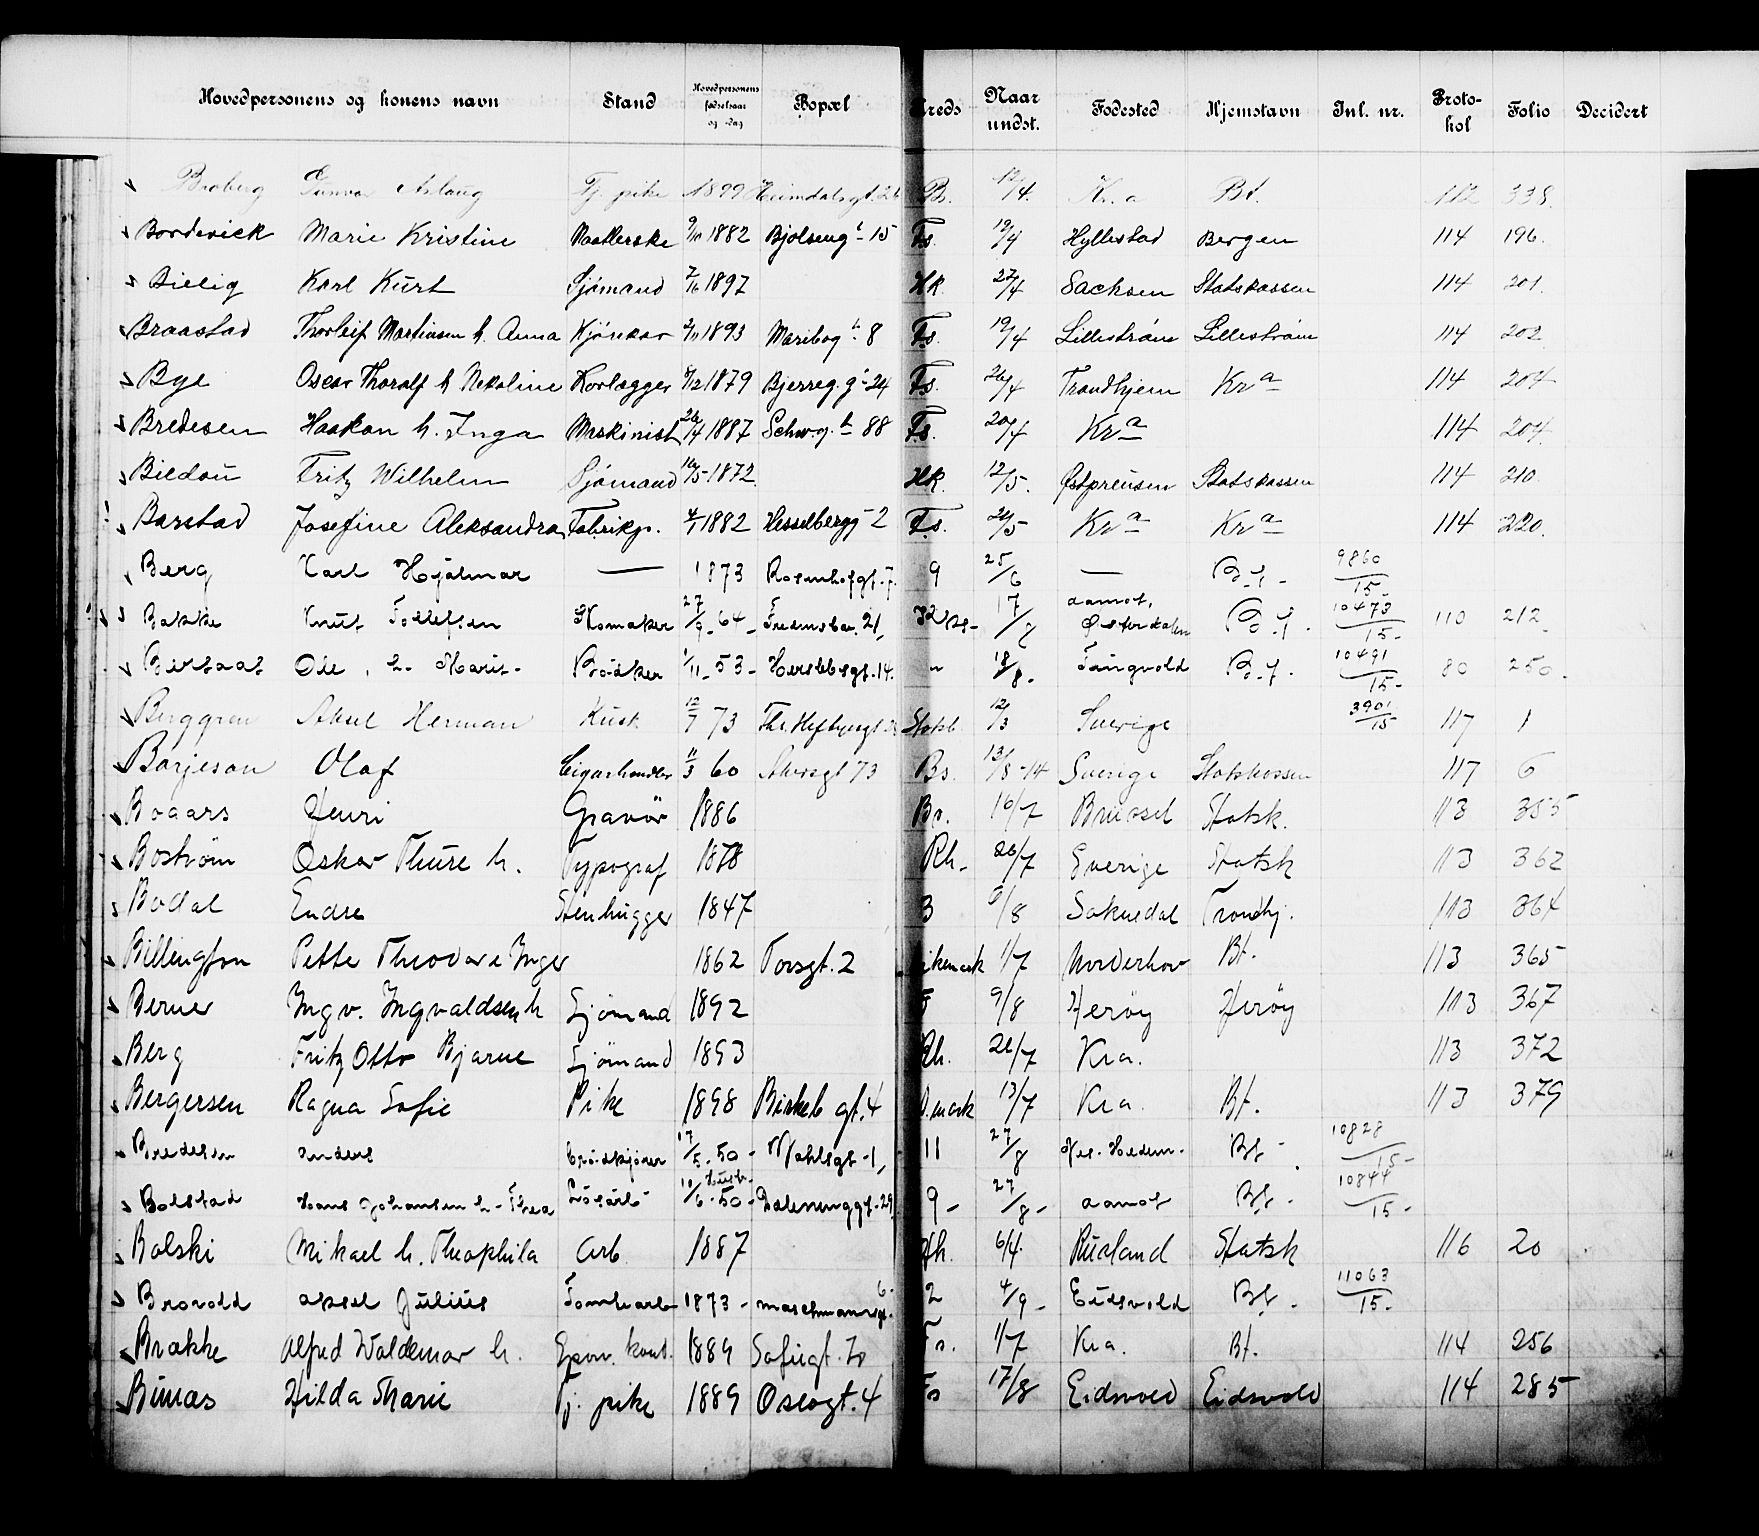 Hovedpersonens og konens navn Stand Hovedpersonens fødselsaar og -dag Bopæl Kreds Naar undst. Fødested Hjemstavn Inl. nr. Proto-kol Folio Decidert
Broberg Gunvor Aslaug Tj. pike 1899 Heimdalsgt. Bs. 12/4. Kr.a Bf. 112 338.
Borderick Marie Kristine 1882 Bjølseng t 15 Fs. 19/4 Hyllestad Bergen 114 196.
Bielig Karl Kurt Sjømand 1897 HK. 27/4 Sachsen Statskassen 114 201.
Braastad Thorleif Martinsen h. Anna Kjørekar 1893 Maribog t 8 Fs. 19/4 Lillestrøm Lillestrøm 114 202
Bye Oscar Thoralf h Nekoline Rørlægger 1879 Bjerreg. g t 24 Fs. 26/4 Trondhjem Kr a 114 204
Bredesen Haakon h. Inga Maskinist 26/4 1887 Schw.g. t 88 Fs. 20/4 Kr a 114 204.
Bildau Fritz Wilhelm Sjømand 16/5 1872. HK. 12/5. Østpreusen Statskassen 114 210.
Barstad Josefine Aleksandra Fabrikp. 1882 Hesselbergg 2 Fs. 21/5 Kr a Kr a 114 220.
Berg Karl Hjalmar — 1873 Rosenhofgt. 7. 9 25/6 — B.f. - 9860/15 -
Bakke Knut Tollefsen Skomaker 27/9 - 64 - Fredensbor. 21, 17/8 aamot, Østerdalen B.f. - 10473/15 - 110 212
Bersaas Ole, h - Marie - Bødker 1/11 - 53 - Herslebsgt. 14. " 18/8 - B.f. - 10491/15 - 80 250.
Berggren Aksel Herman Kusk 12/7 73 Th. Heftyesgt. Stokb 12/3 Sverige 3901/15 117 1
Børjeson Olaf Cigarhandler 11/3 60 Akersgt 73 Bs. 13/8 - 14 Sverige Statskassen 117 6
Bogars Henri Gravør 1886 Bs. 16/7 Brüssel Statsk. 113 355
Boström Oskar Thure h. Typograf 1878 Rh. 26/7 Sverige Statsk 113 362
Bodal Endre Stenhugger 1847 3 6/8 Soknedal Trondhj. 113 364
Billington Pette Theodora Inger 1862 Torsgt. 2 1/7 Norderhov Bf. 113 365
Berner Ingv. Ingvaldsen h Sjømand 1892 F 9/8 Herøy Herøy 113 367
Berg Fritz Otto Bjarne Sjømand 1893 Rh. 26/7 Kra. 113 372
Bergersen Ragna Sofie Pike 1898 Birkeb gt. 4 13/7 Kra. Bf. 113 379
Bredesen anders Brødkjører 17/5 - 50 - Wahlsgt - 1, 11 27/8 Bf - 10828/15 -
Bolstad Hans Johansen h - Thea Løsarb - 10/6 - 50 - Dælenenggt - 29 9 - 27/8 - aamot Bf - 10844/15 -
Bolski Mikael h. Theophila Arb. 1887 Rh. 6/4. Rusland Statsk 116 20
Brovold aksel Julius Tomtearb 1873 - maschmannsgt. 6 - 2 4/9 - Eidsvold Bf - 11063/15 -
Brække Alfred Waldemar h. Sporv. kond. 1889 Sofiegt. 7 Fs. 1/7 Kra. Bf. 114 256
Bunæs Hilda Marie Tj. pike 1889 Oslogt. 4 Fs 17/8 Eidsvold Eidsvold 114 285